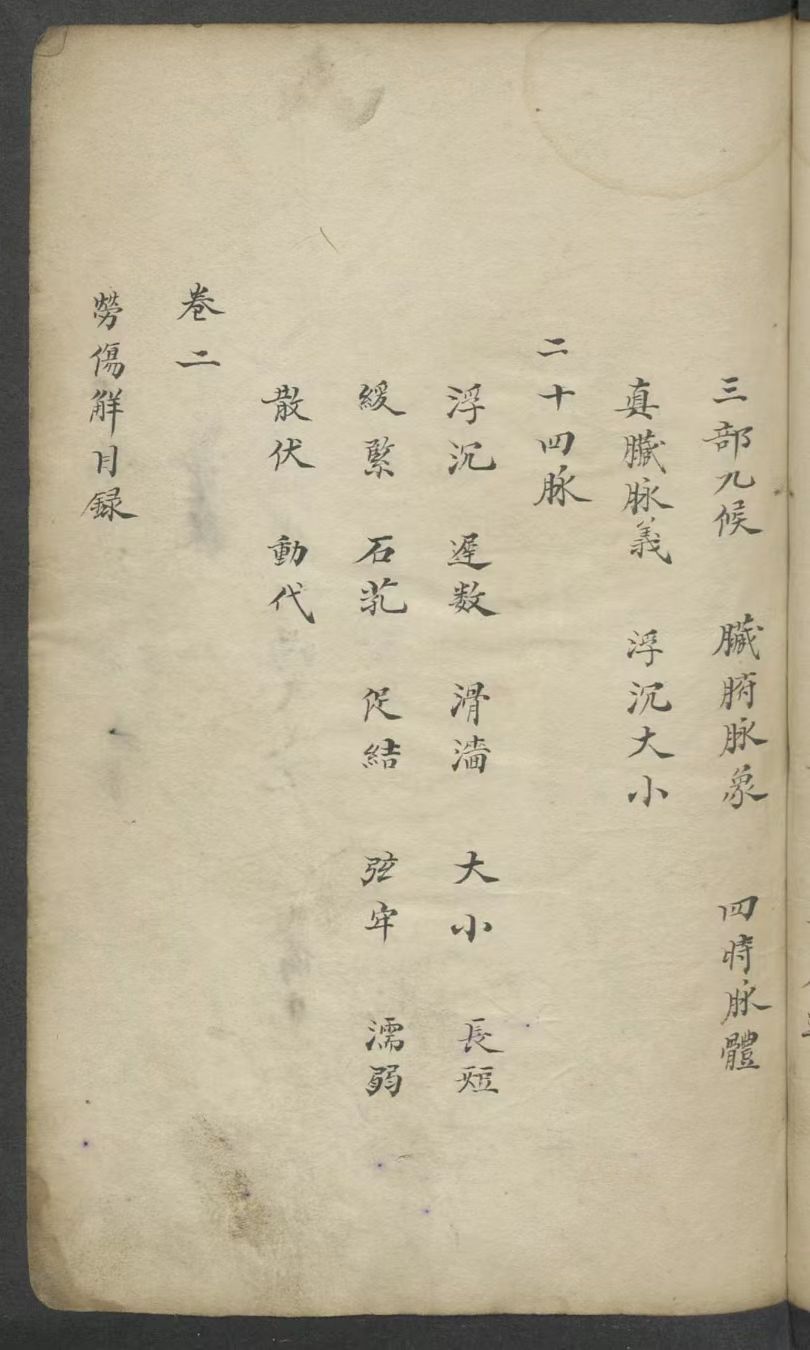 三部九候　臟腑脉象　四時脉體
真臟脉義　浮沉大小
二十四脉
浮沉　遲数　滑濇　大小　長短
緩緊　石芤　促結　弦牢　濡弱
散伏　動代
卷二
勞傷解目録